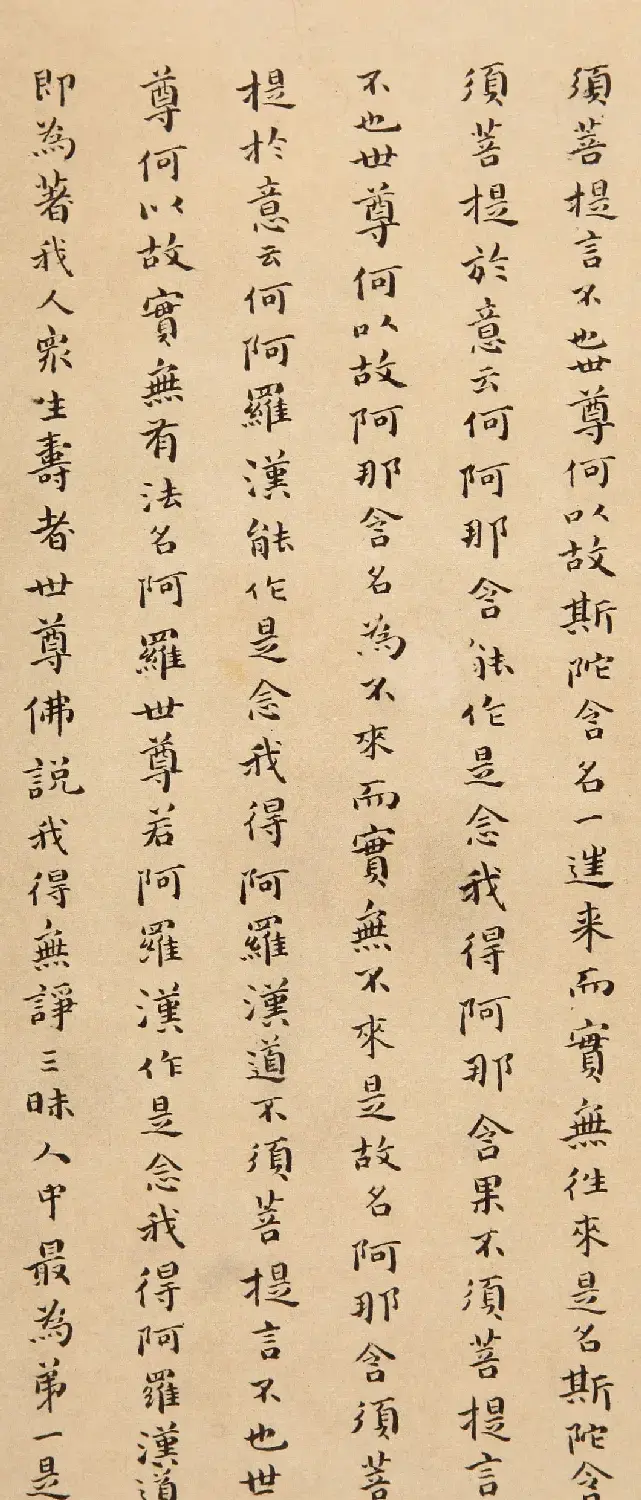 須菩提言不也世尊何以故斯陀含名一往来而實無往來是名斯陀含
須菩提於意云何阿那含能作是念我得阿那含果不須菩提言
不也世尊何以故阿那含名為不來而實無不來是故名阿那含須菩
提於意云何阿羅漢能作是念我得阿羅漢道不須菩提言不也世
尊何以故實無有法名阿羅世尊若阿羅漢作是念我得阿羅漢道
即為著我人衆生壽者世尊佛説我得無諍三昧人中最為第一是